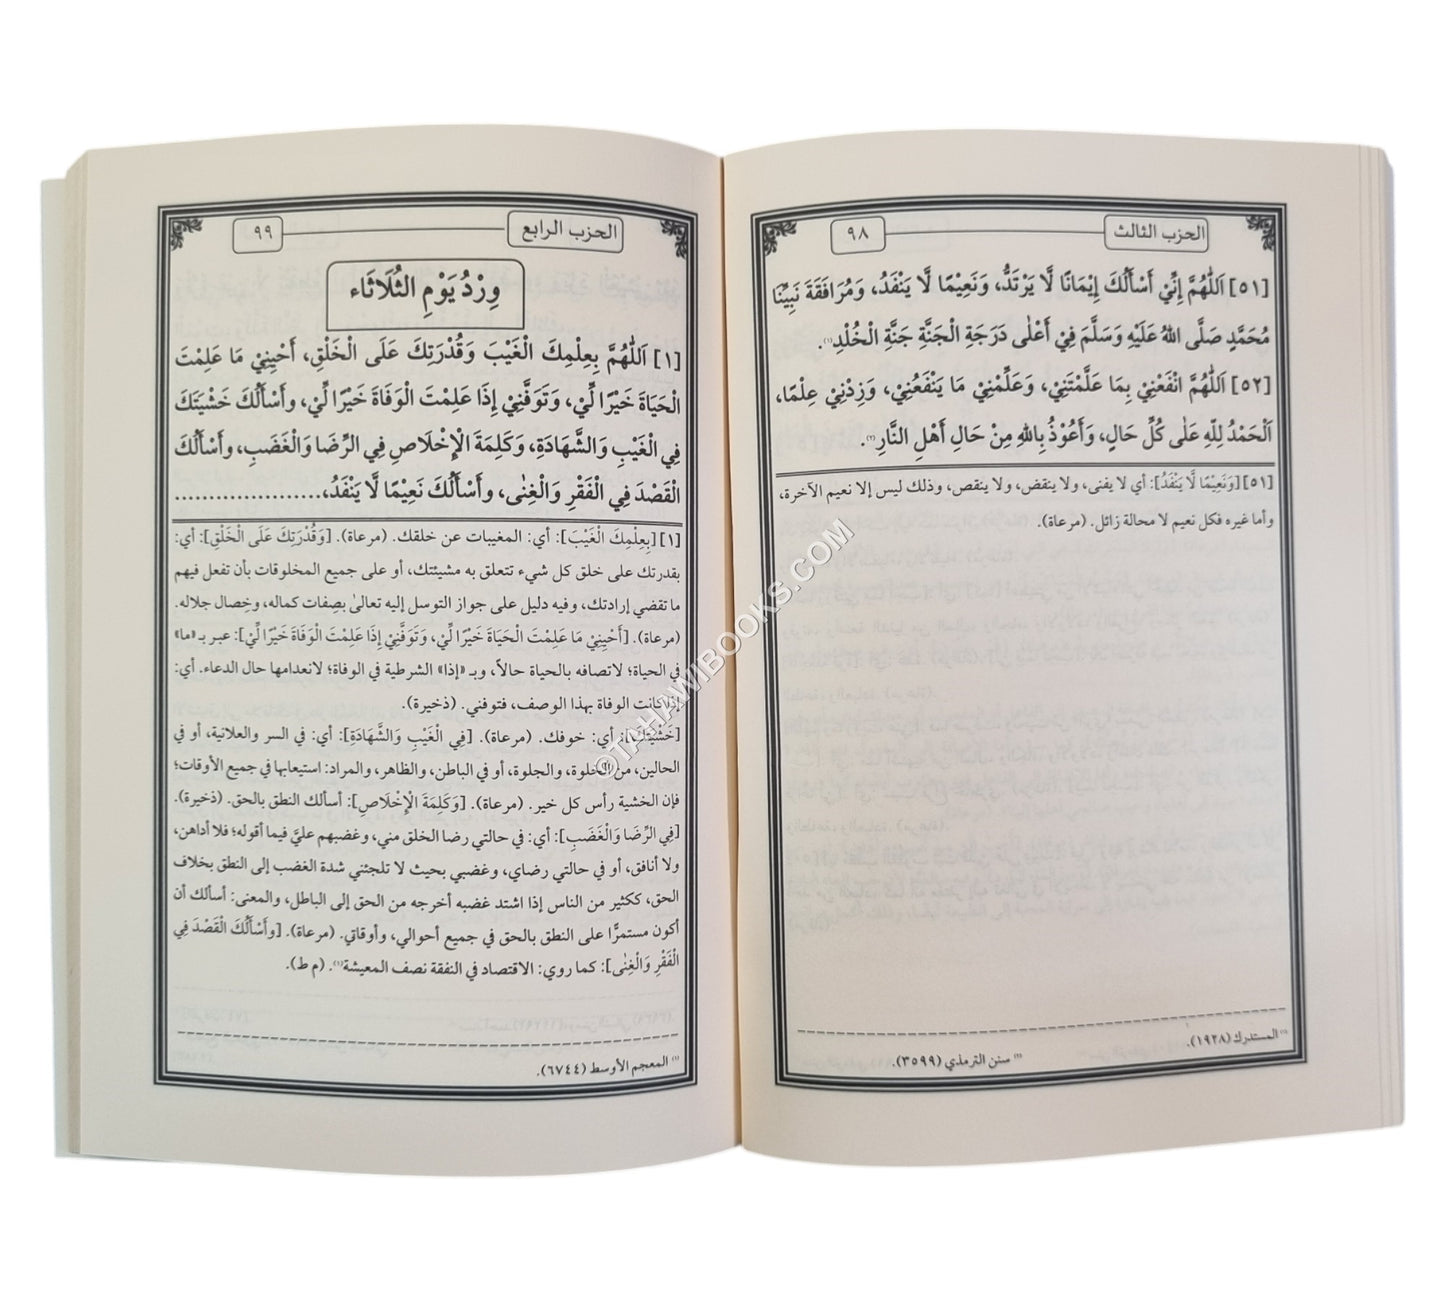 الحزب الثالث ٩٨
[٥١] اَللّٰهُمَّ إِنِّيْ أَسْأَلُكَ إِيْمَانًا لَّا يَرْتَدُّ، وَنَعِيْمًا لَّا يَنْفَدُ، وَمُرَافَقَةَ نَبِيِّنَا
مُحَمَّدٍ صَلَّى اللهُ عَلَيْهِ وَسَلَّمَ فِيْ أَعْلٰى دَرَجَةِ الْجَنَّةِ جَنَّةِ الْخُلْدِ.(١)
[٥٢] اَللّٰهُمَّ انْفَعْنِيْ بِمَا عَلَّمْتَنِيْ، وَعَلِّمْنِيْ مَا يَنْفَعُنِيْ، وَزِدْنِيْ عِلْمًا،
اَلْحَمْدُ لِلّٰهِ عَلٰى كُلِّ حَالٍ، وَأَعُوْذُ بِاللهِ مِنْ حَالِ أَهْلِ النَّارِ.(٢)
[٥١] [وَنَعِيْمًا لَّا يَنْفَدُ]: أي لا يفنى، ولا ينقض، ولا ينقص، وذلك ليس إلا نعيم الآخرة،
وأما غيره فكل نعيم لا محالة زائل. (مرعاة).
(١) المستدرك (١٩٢٨).
(٢) سنن الترمذي (٣٥٩٩).
الحزب الرابع ٩٩
وِرْدُ يَوْمِ الثُّلَاثَاء
[١] اَللّٰهُمَّ بِعِلْمِكَ الْغَيْبَ وَقُدْرَتِكَ عَلَى الْخَلْقِ، أَحْيِنِيْ مَا عَلِمْتَ
الْحَيَاةَ خَيْرًا لِّيْ، وَتَوَفَّنِيْ إِذَا عَلِمْتَ الْوَفَاةَ خَيْرًا لِّيْ، وأَسْأَلُكَ خَشْيَتَكَ
فِي الْغَيْبِ وَالشَّهَادَةِ، وَكَلِمَةَ الْإِخْلَاصِ فِي الرِّضَا وَالْغَضَبِ، وأَسْأَلُكَ
الْقَصْدَ فِي الْفَقْرِ وَالْغِنٰى، وأَسْأَلُكَ نَعِيْمًا لَّا يَنْفَدُ،......................
[١] [بِعِلْمِكَ الْغَيْبَ]: أي: المغيبات عن خلقك. (مرعاة). [وَقُدْرَتِكَ عَلَى الْخَلْقِ]: أي:
بقدرتك على خلق كل شيء تتعلق به مشيئتك، أو على جميع المخلوقات بأن تفعل فيهم
ما تقضي إرادتك، وفيه دليل على جواز التوسل إليه تعالىٰ بصِفات كماله، وخِصال جلاله.
(مرعاة). [أَحْيِنِيْ مَا عَلِمْتَ الْحَيَاةَ خَيْرًا لِّيْ، وَتَوَفَّنِيْ إِذَا عَلِمْتَ الْوَفَاةَ خَيْرًا لِّيْ]: عبر بـ «ما»
في الحياة؛ لاتصافه بالحياة حالاً، وبـ «إذا» الشرطية في الوفاة؛ لانعدامها حال الدعاء. أي:
إذا كانت الوفاة بهذا الوصف، فتوفني. (ذخيرة).
[خَشْيَتَكَ]: أي: خوفك. (مرعاة). [فِي الْغَيْبِ وَالشَّهَادَةِ]: أي: في السر والعلانية، أو في
الحالين، من الخلوة، والجلوة، أو في الباطن، والظاهر، والمراد: استيعابها في جميع الأوقات؛
فإن الخشية رأس كل خير. (مرعاة). [وَكَلِمَةَ الْإِخْلَاصِ]: أسألك النطق بالحق. (ذخيرة).
[فِي الرِّضَا وَالْغَضَبِ]: أي: في حالتي رضا الخلق مني، وغضبهم عليَّ فيما أقوله؛ فلا أداهن،
ولا أنافق، أو في حالتي رضاي، وغضبي بحيث لا تلجئني شدة الغضب إلى النطق بخلاف
الحق، ككثير من الناس إذا اشتد غضبه أخرجه من الحق إلى الباطل، والمعنى: أسألك أن
أكون مستمرًّا على النطق بالحق في جميع أحوالي، وأوقاتي. (مرعاة). [وأَسْأَلُكَ الْقَصْدَ فِي
الْفَقْرِ وَالْغِنٰى]: كما روي: الاقتصاد في النفقة نصف المعيشة(١). (م ط).
(١) المعجم الأوسط (٦٧٤٤).
OTAHAWIBOOKS.COM